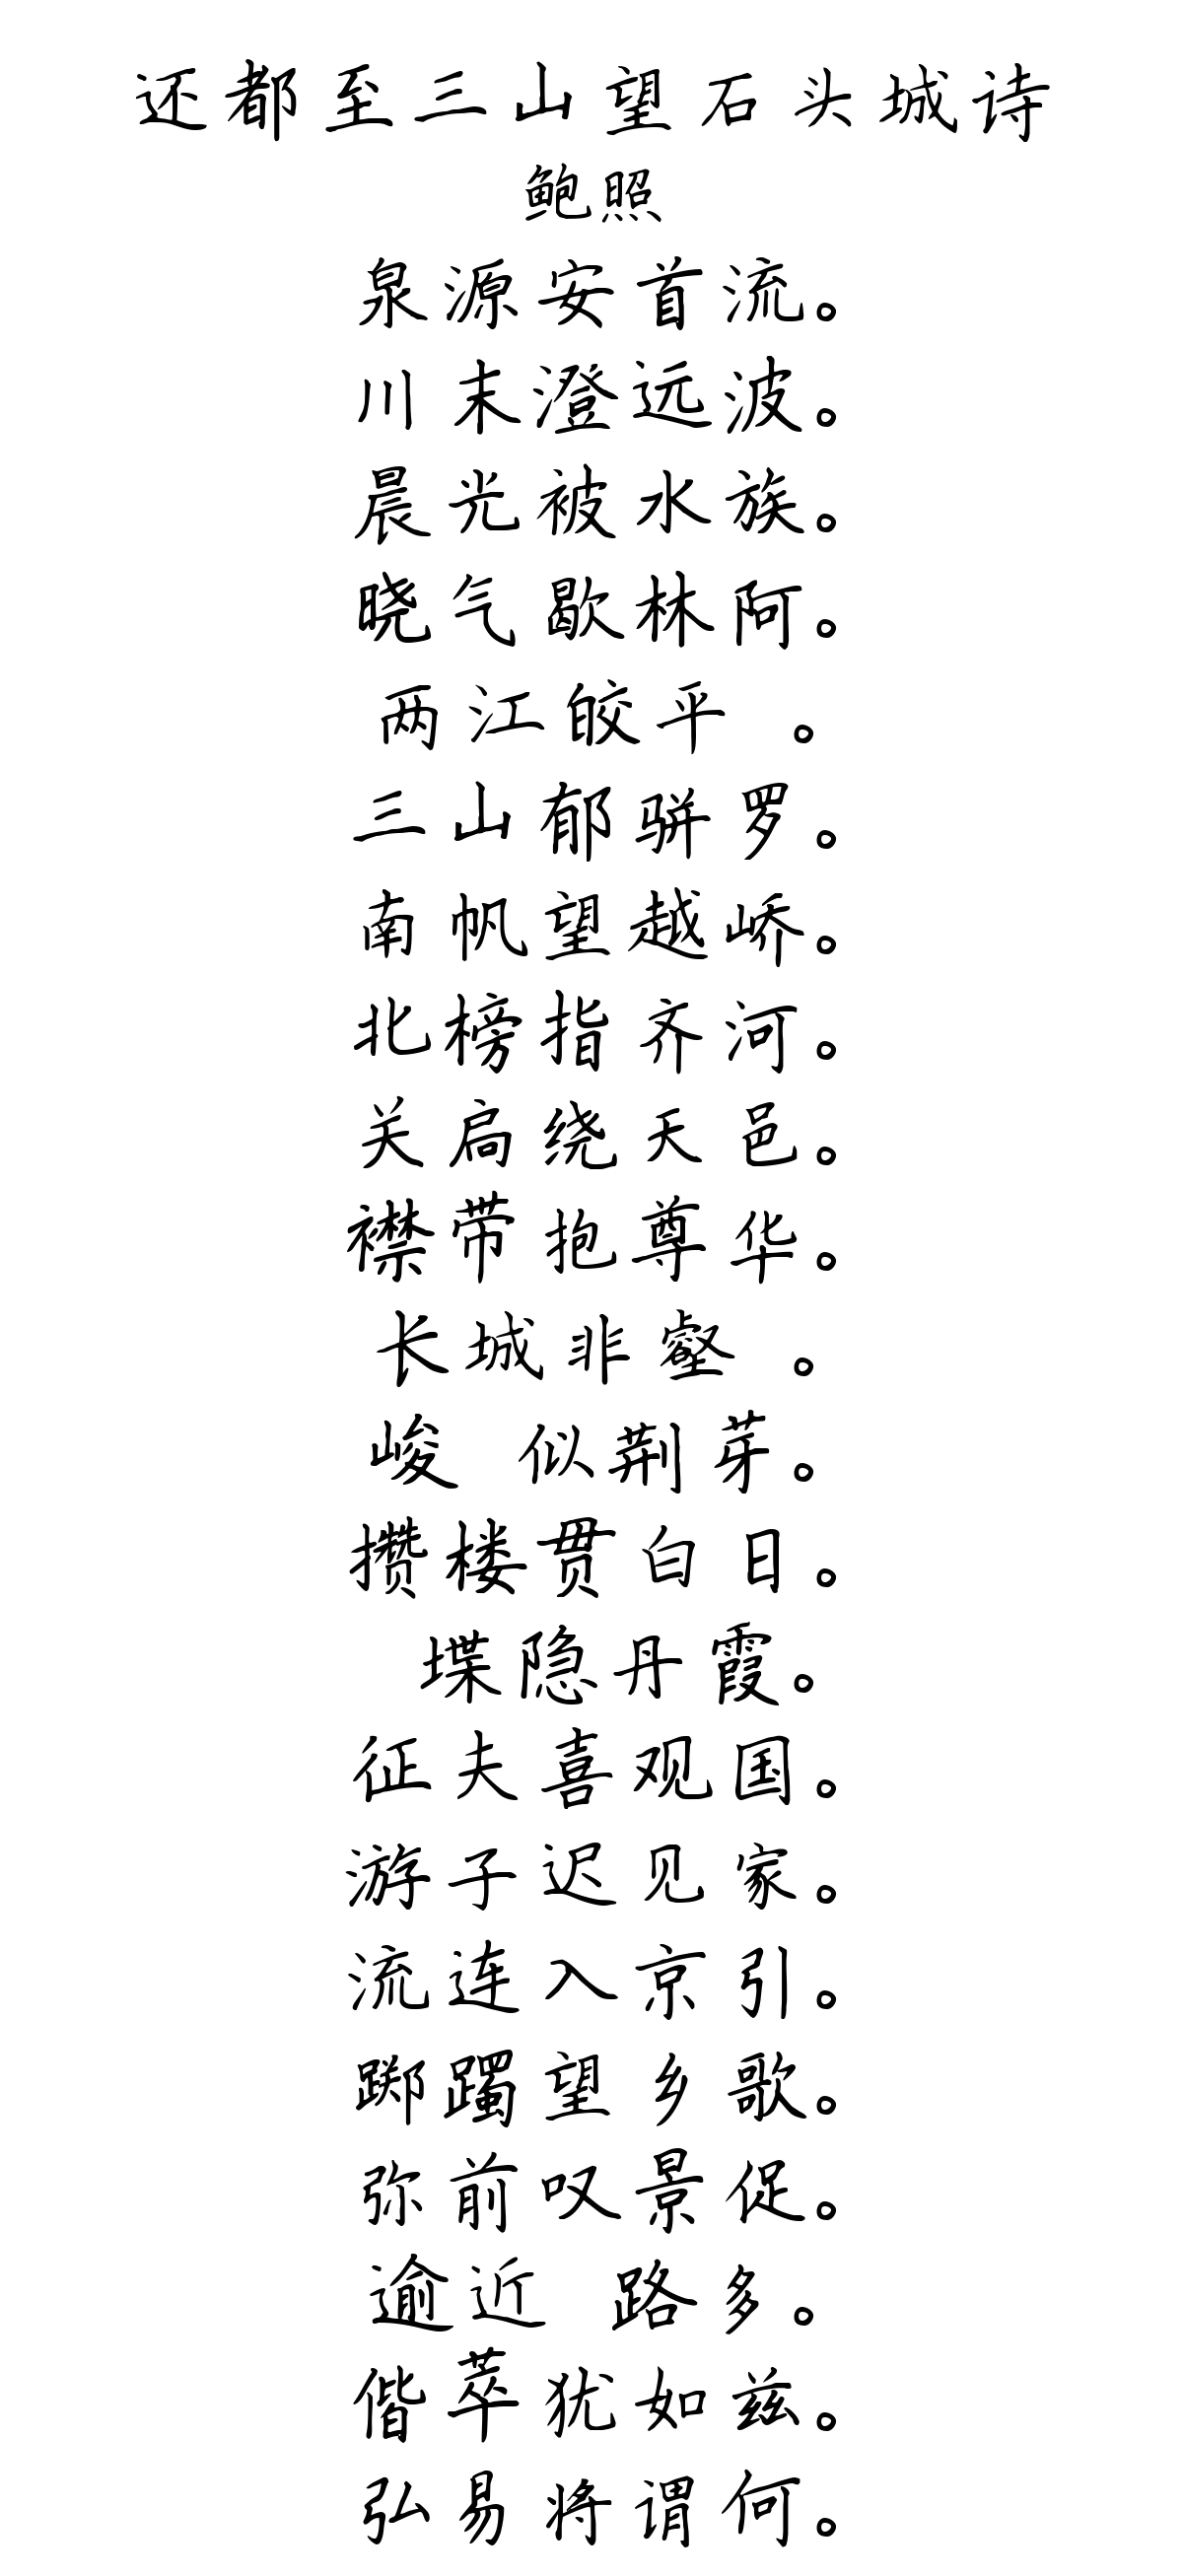 还都至三山望石头城诗
鲍照
泉源安首流。
川末澄远波。
晨光被水族。
晓气歇林阿。
两江皎平 。
三山郁骈罗。
南帆望越峤。
北榜指齐河。
关扃绕天邑。
襟带抱尊华。
长城非壑 。
峻 似荆芽。
攒楼贯白日。
堞隐丹霞。
征夫喜观国。
游子迟见家。
流连入京引。
踯躅望乡歌。
弥前叹景促。
逾近 路多。
偕萃犹如兹。
弘易将谓何。